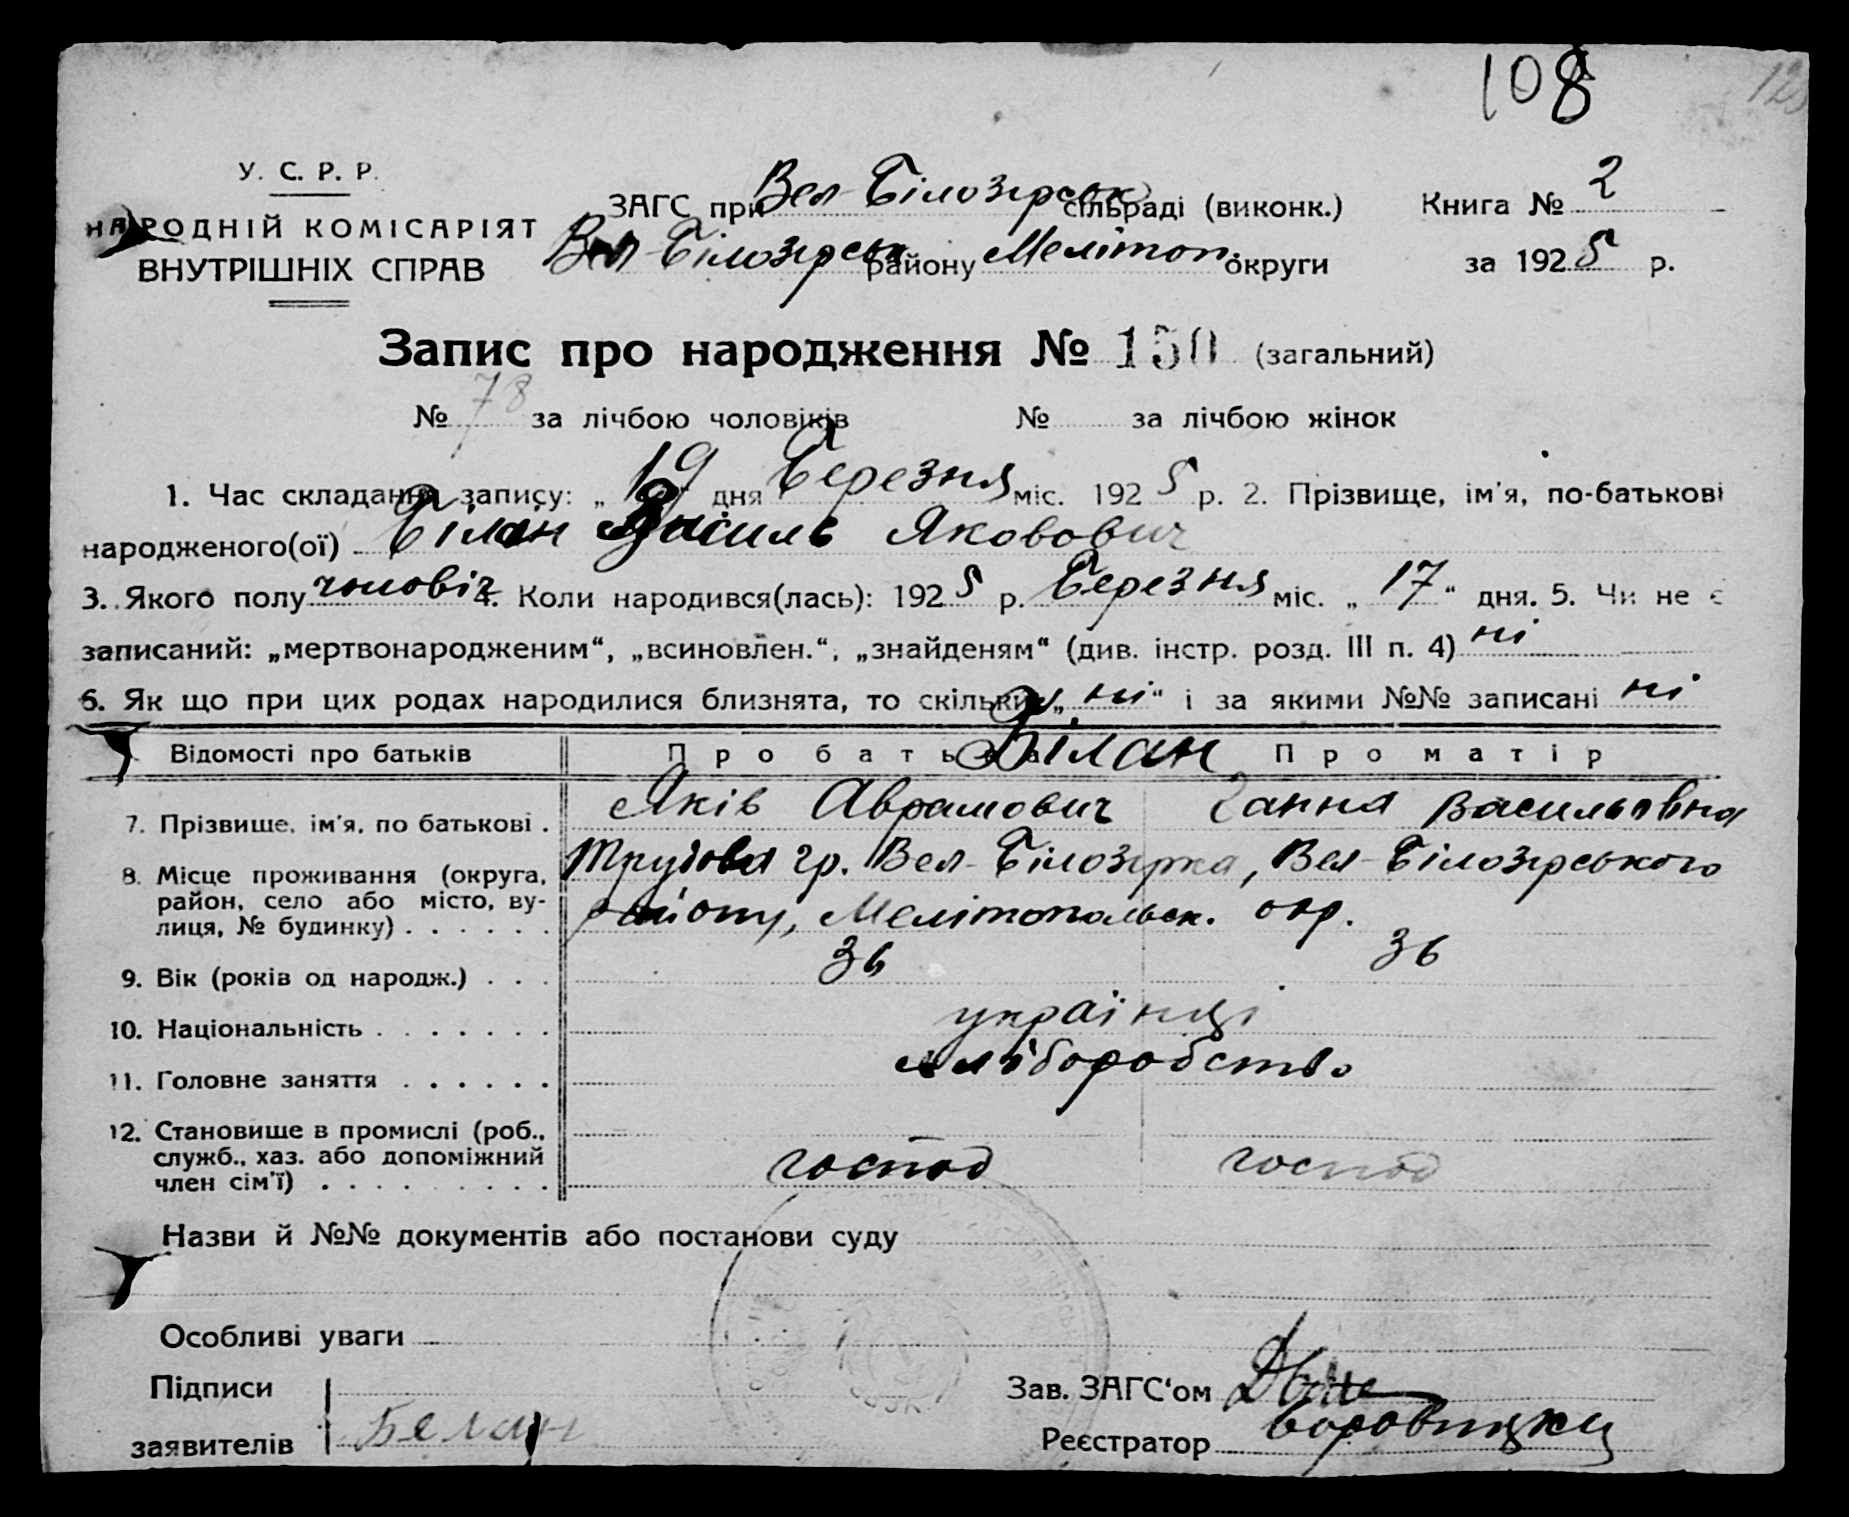 108
У. С. Р. Р.
НАРОДНІЙ КОМІСАРІЯТ
ВНУТРІШНІХ СПРАВ
ЗАГС при Вел-Білозірськ сільраді (виконк.) Книга № 2
Вел-Білозірськ району Мелітоп. округи за 1925 р.
Запис про народження № 150 (загальний)
№ 78 за лічбою чоловіків № за лічбою жінок
1. Час складання запису: „19" дня Березня міс. 1925 р. 2. Прізвище, ім'я, по-батькові
народженого(ої) Білан Василь Якович
3. Якого полу чоловіч 4. Коли народився(лась): 1925 р. Березня міс. „17" дня. 5. Чи не є
записаний: „мертвонародженим", „всиновлен.", „знайденям" (див. інстр. розд. III п. 4) ні
6. Як що при цих родах народилися близнята, то скільки „ні" і за якими №№ записані ні
Відомості про батьків Про батька Про матір
Білан
7. Прізвище, ім'я, по батькові . Яків Аврамович Ганна Васильовна
8. Місце проживання (округа, Трудова гр. Вел-Білозірка, Вел-Білозірського
район, село або місто, ву-
лиця, № будинку) . . . . . . району, Мелітопольськ. окр.
9. Вік (років од народж.) . . . 36 36
10. Національність . . . . . . . українці
11. Головне заняття . . . . . . хліборобство
12. Становище в промислі (роб.,
служб., хаз. або допоміжний
член сім'ї) . . . . . . . . . господ господ
Назви й №№ документів або постанови суду
Особливі уваги
Підписи
Зав. ЗАГС'ом
заявителів Белан
Реєстратор